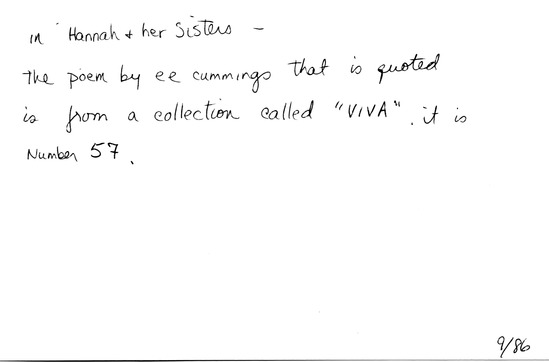 in Hannah + her Sisters –
The poem by ee cummings that is quoted
is from a collection called "VIVA". it is
Number 57.
9/86